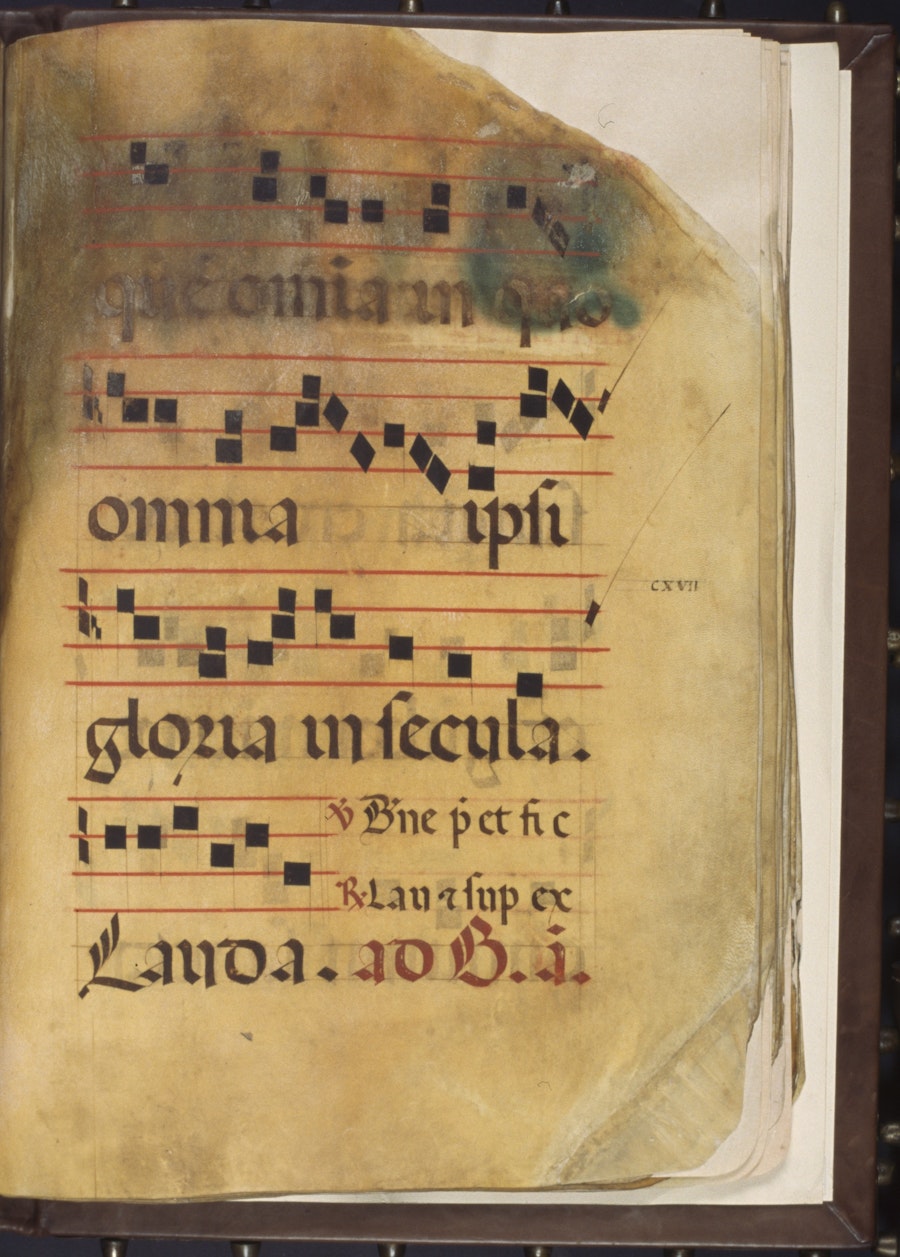 que omia in quo
omnia ipsi
CXVII
gloria in secula.
℣ B'ne p et fi c
℟ Lau ⁊ sup ex
Lauda. ad B. i.